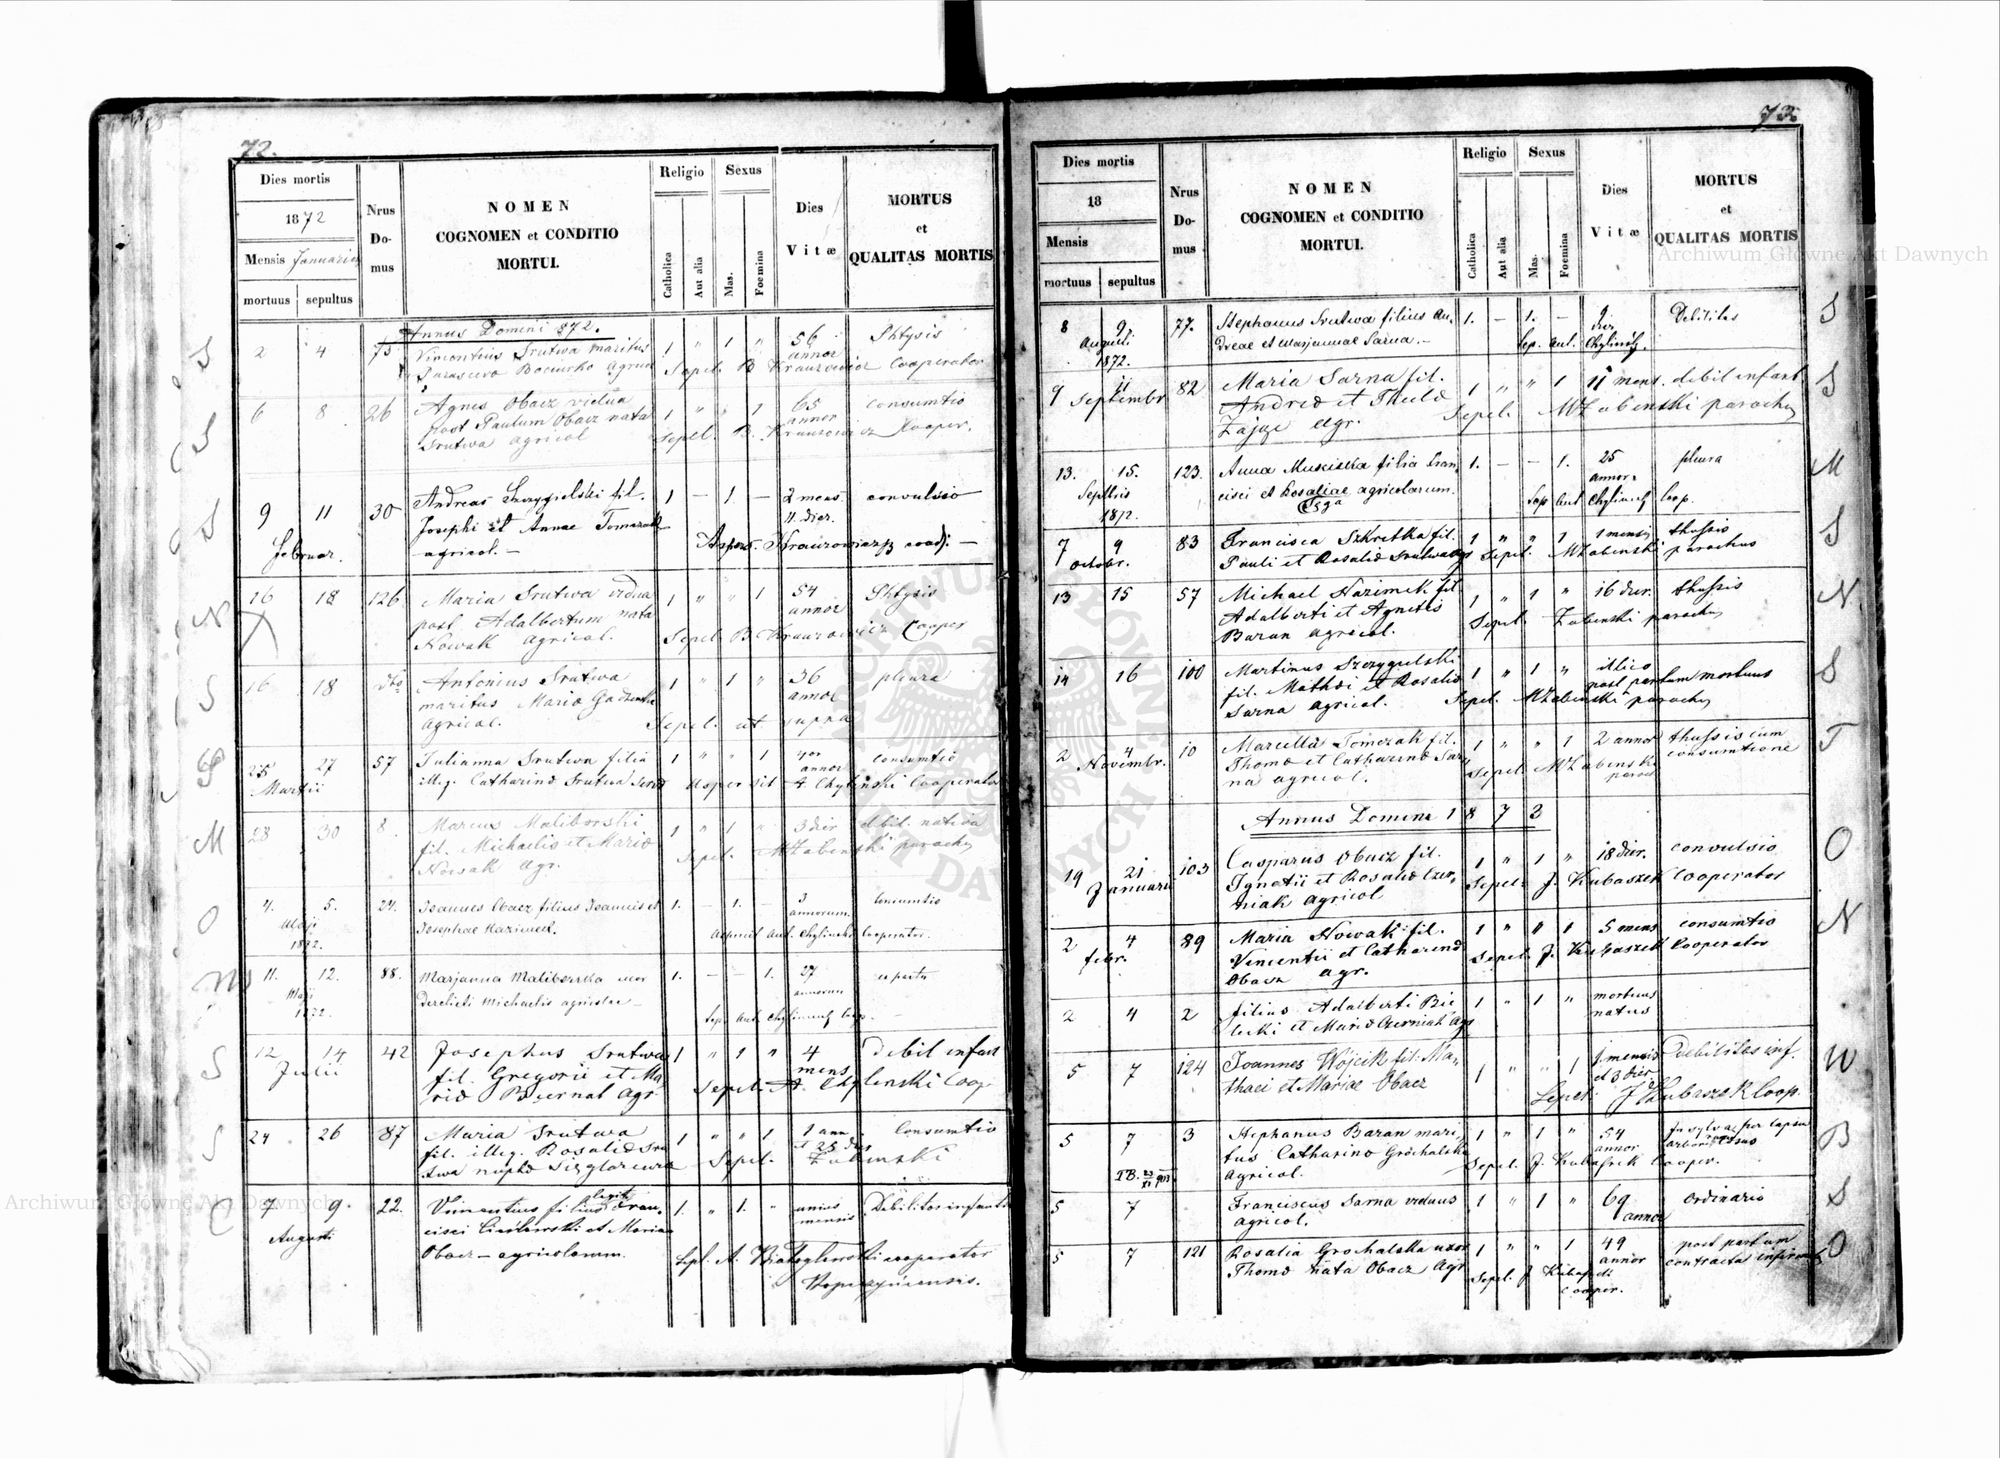 72.
Dies mortis
1872
Mensis Januarius
mortuus sepultus
Nrus Do- mus
NOMEN
COGNOMEN et CONDITIO
MORTUI.
Religio
Catholica
Aut alia
Sexus
Mas.
Foemina
Dies
Vitæ
MORTUS
et
QUALITAS MORTIS
Annus Domini 872.
2 4 75 Vincentius Srutwa maritus 1 " 1 " 56 annor Phtysis
Agricol Sepel. B Krauzowicz Cooperator
6 8 26 Agnes Obacz vidua 1 " " 1 65 annor consumtio
post Paulum Obacz nata
Srutwa agricol Sepel. B. Krauzowicz Cooper.
9 11 30 Andreas Szczygielski fil. 1 — 1 — 2 mens. 11 dier. convulsio
Februar. Josephi et Annae Tomczak
agricol. — Aspers. Krauzowicz coadj. —
16 18 126 Maria Srutwa vidua 1 " " 1 54 annor Phtysis
post Adalbertum nata
Nowak agricol. Sepel B Krauzowicz Cooper
16 18 dto Antonius Srutwa 1 " 1 " 36 annor pleura
maritus Maria
Agricol. Sepel. ut supra
25 27 57 Julianna Srutwa filia 1 " " 1 4 annor consumtio
Martii illeg. Catharina Srutwa Aspersit A Chylinski Cooperator
28 30 8 Marcus Maliborski 1 " 1 " 3 dier debil. nativa
fil. Michaelis et Maria Sepel. MZabenski parochus
Nowak Agr.
4. 5. 24. Joannes Obacz filius Joannis et 1. — 1. — 3 annorum. Consumtio
Maji 1872. Josephae Kazimek. Aspersit Ant. Chylinski Cooperator.
11. 12. 88. Marjanna Maliborska uxor 1. — — 1. 27 annorum
Maji 1872. derelicti Michaelis agricolae — Sep. Ant. Chylinski Coop.
12 14 42 Josephus Srutwa 1 " 1 " 4 mens Debil infant
Julii fil. Gregorii et Ma-
ria Biernat Agr Sepel. A. Chylinski Coop
24 26 87 Maria Srutwa 1 " " 1 1 ann et 25 dies Consumtio
fil. illeg. Rosalia Sru
twa Sepel. Zabenski
7 9. 22. Vincentius filius Fran- 1. " 1. " unius mensis Debilitas infantis
Augusti cisci et Maria
Obacz — agricolarum. Sepl. A. cooperator
73.
Dies mortis
18
Mensis
mortuus sepultus
Nrus Do- mus
NOMEN
COGNOMEN et CONDITIO
MORTUI.
Religio
Catholica
Aut alia
Sexus
Mas.
Foemina
Dies
Vitæ
MORTUS
et
QUALITAS MORTIS
8 9. 77. Stephanus Srutwa filius An- 1. — 1. — 9 dier Debilitas
Augusti 1872. dreae et Marjannae Sarna. — Sep. Ant. Chylinski.
9 11 82 Maria Sarna fil. 1 " " 1 11 mens. debil infant
Septembr Andrea et Thecla
Zając Agr. Sepel. MZabenski parochus
13. 15. 123. Anna filia Fran- 1. — — 1. 25 annor. pleura
Septbris 1872. cisci et Rosaliae agricolarum. Sep. Ant Chylinski Coop.
7 9 83 Francisca Szkretka fil. 1 " " 1 1 mensis thussis
octobr. Pauli et Rosalia Srutwa agr Sepel. MZabenski parochus
13 15 57 Michael Kazimek fil. 1 " 1 " 16 dier. thussis
Adalberti et Agnetis
Baran agricol. Sepel. Zabenski parochus
14 16 100 Martinus Szczygielski 1 " 1 " illico post partum mortuus
fil. Mathei et Rosalia
Sarna agricol. Sepel. MZabenski parochus
2 4 10 Marcella Tomczak fil. 1 " " 1 2 annor thussis cum
Novembr. Thoma et Catharina Sar- consumtione
na agricol. Sepel MZabenski paroch
Annus Domini 1873
19 21 103 Casparus Obacz fil. 1 " 1 " 18 dier. convulsio
Januarii Ignatii et Rosalia Czer-
niak agricol Sepel. J. Kubaszek Cooperator
2 4 89 Maria Nowak fil. 1 " " 1 5 mens consumtio
febr. Vincentii et Catharina Sepel. J. Kubaszek Cooperator
Obacz agr.
2 4 2 filius Adalberti Bie 1 " 1 " mortuus natus
lecki et Maria Czerniak Agr
5 7 124 Joannes Wojcik fil. Ma- 1 " " 1 1 mensis et 3 dier Debilitas inf.
thaei et Mariae Obacz Sepel. J Kubaszek Coop.
5 7 3 Stephanus Baran mari- 1 " 1 " 54 annor In sylva per lapsu
tus Catharina Grochalska arboris
agricol. Sepel. J. Kubaszek Cooper.
5 7 Franciscus Sarna viduus 1 " 1 " 69 annor ordinario
agricol.
5 7 121 Rosalia Grochalska uxor 1 " " 1 49 annor post partum
Thoma nata Obacz Agr contracta infirmitas
Sepel. J Kubaszek Cooper.
Archiwum Główne Akt Dawnych
Archiwum Główne Akt Dawnych
ARCHIWUM GŁÓWNE AKT DAWNYCH